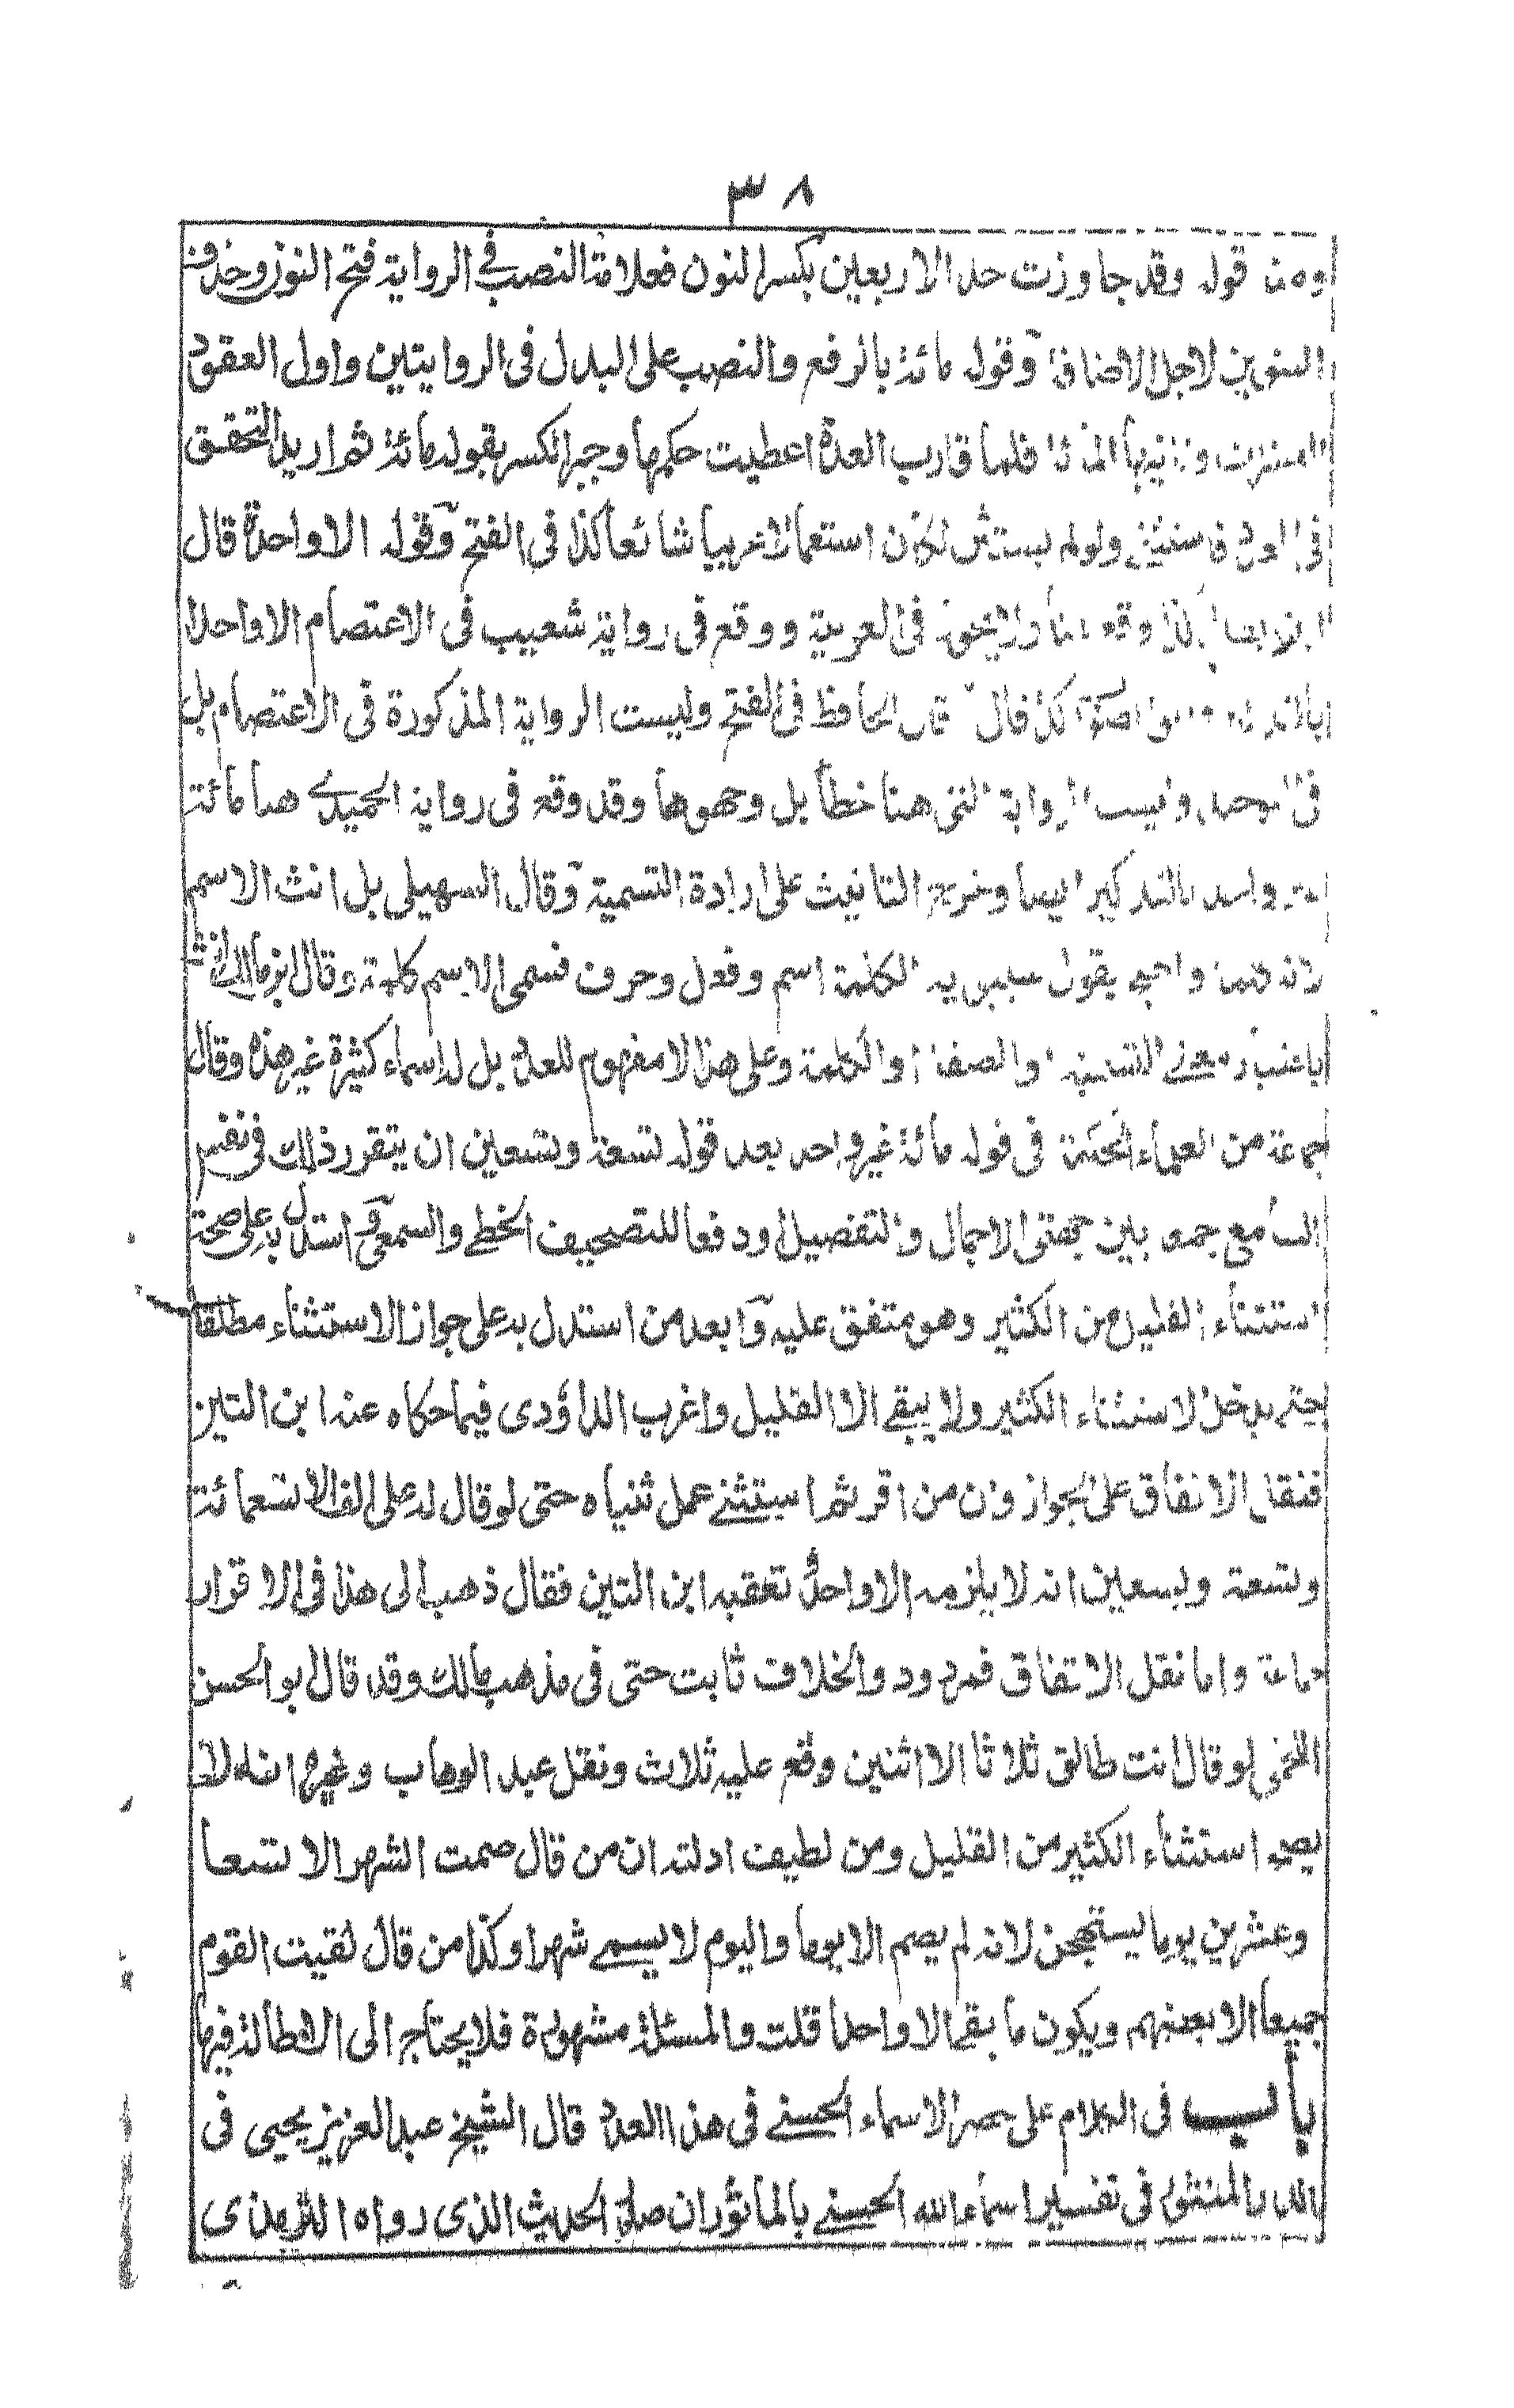 ٣٨
ومنه قوله وقد جاوزت حد الاربعين بكسر النون فعلامة النصب في الرواية فتح النون وحذف
التنوين لاجل الاضافة وقوله مائة بالرفع والنصب على البدل فى الروايتين واول العقود
العشرات وثانيها المائة فلما قارب العدة اعطيت حكمها وجبر الكسر بقوله مائة ثم اريد التحقق
فى العدد فاستثنى ولو لم يستثن لكان استعمالا عربيا شائعا كذا فى الفتح وقوله الا واحدة قال
ابن بطال كذا وقع هنا ولا يجوز فى العربية ووقع فى رواية شعيب فى الاعتصام الا واحدا
بالتذكير وهو الصواب كذا قال قال الحافظ فى الفتح وليست الرواية المذكورة فى الاعتصام بل
فى التوحيد وليست الرواية التى هنا خطأ بل وجهوها وقد وقع فى رواية الحميدي هنا مائة
غير واحد بالتذكير ايضا وخرج التانيث على ارادة التسمية وقال السهيلى بل انث الاسم
لانه كلمة واحتج بقول سيبويه الكلمة اسم وفعل وحرف فسمى الاسم كلمة وقال ابن مالك انث
باعتبار معنى التسمية او الصفة او الكلمة وعلى هذا لا مفهوم للعدد بل له اسماء كثيرة غير هذه وقال
جماعة من العلماء الحكمة فى قوله مائة غير واحد بعد قوله تسعة وتسعين ان يتقرر ذلك فى نفس
السامع جمعا بين جهتى الاجمال والتفصيل ودفعا للتصحيف الخطي والسمعى واستدل به على صحة
استثناء القليل من الكثير وهو متفق عليه وابعد من استدل به على جواز الاستثناء مطلقا
حتى يدخل استثناء الكثير ولا يبقى الا القليل واغرب الداؤدى فيما حكاه عنه ابن التين
فنقل الاتفاق على الجواز وان من اقر ثم استثنى عمل ثنياه حتى لو قال له على الف الا تسعمائة
وتسعة وتسعين انه لا يلزمه الا واحد وتعقبه ابن التين فقال ذهب الى هذا فى الاقرار
جماعة واما نقل الاتفاق فمردود والخلاف ثابت حتى فى مذهب مالك وقد قال ابو الحسن
اللخمى لو قال انت طالق ثلاثا الا اثنين وقع عليه ثلاث ونقل عبد الوهاب وغيره انه لا
يصح استثناء الكثير من القليل ومن لطيف ادلته ان من قال صمت الشهر الا تسعا
وعشرين يوما يستهجن لانه لم يصم الا يوما واليوم لا يسمى شهرا وكذا من قال لقيت القوم
جميعا الا بعضهم ويكون ما بقى الا واحدا قلت والمسئلة مشهورة فلا يحتاج الى الاطالة فيها
باب فى الكلام على حصر الاسماء الحسنى فى هذا العدد قال الشيخ عبد العزيز يحيى فى
الدر المنثور فى تفسير اسماء الله الحسنى بالماثور ان صلة الحديث الذى رواه الترمذى